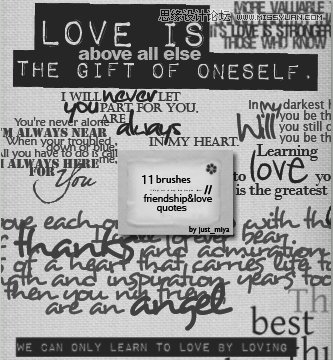 思缘设计论坛 WWW.MISSYUAN.COM
MORE VALUABLE
LOVE IS
IS LOVE IS STRONGER
THOSE WHO KNOW
above all else
THE GIFT OF ONESELF.
I WILL never LET
you PART FOR YOU.
ARE always
IN MY HEART.
You're never alone
I'M ALWAYS NEAR
When your troubled,
down or blue,
All you have to do is call
I ALWAYS HERE
FOR You
In my darkest
you be th
Will you be st
you be th
Learning
to love yo
is the greatest
11 brushes
friendship&love
quotes
by just_miya
thanks and admiration
of a heart that carries life to
and inspiration years too
then you
are an angel
Th
best
thi
WE CAN ONLY LEARN TO LOVE BY LOVING